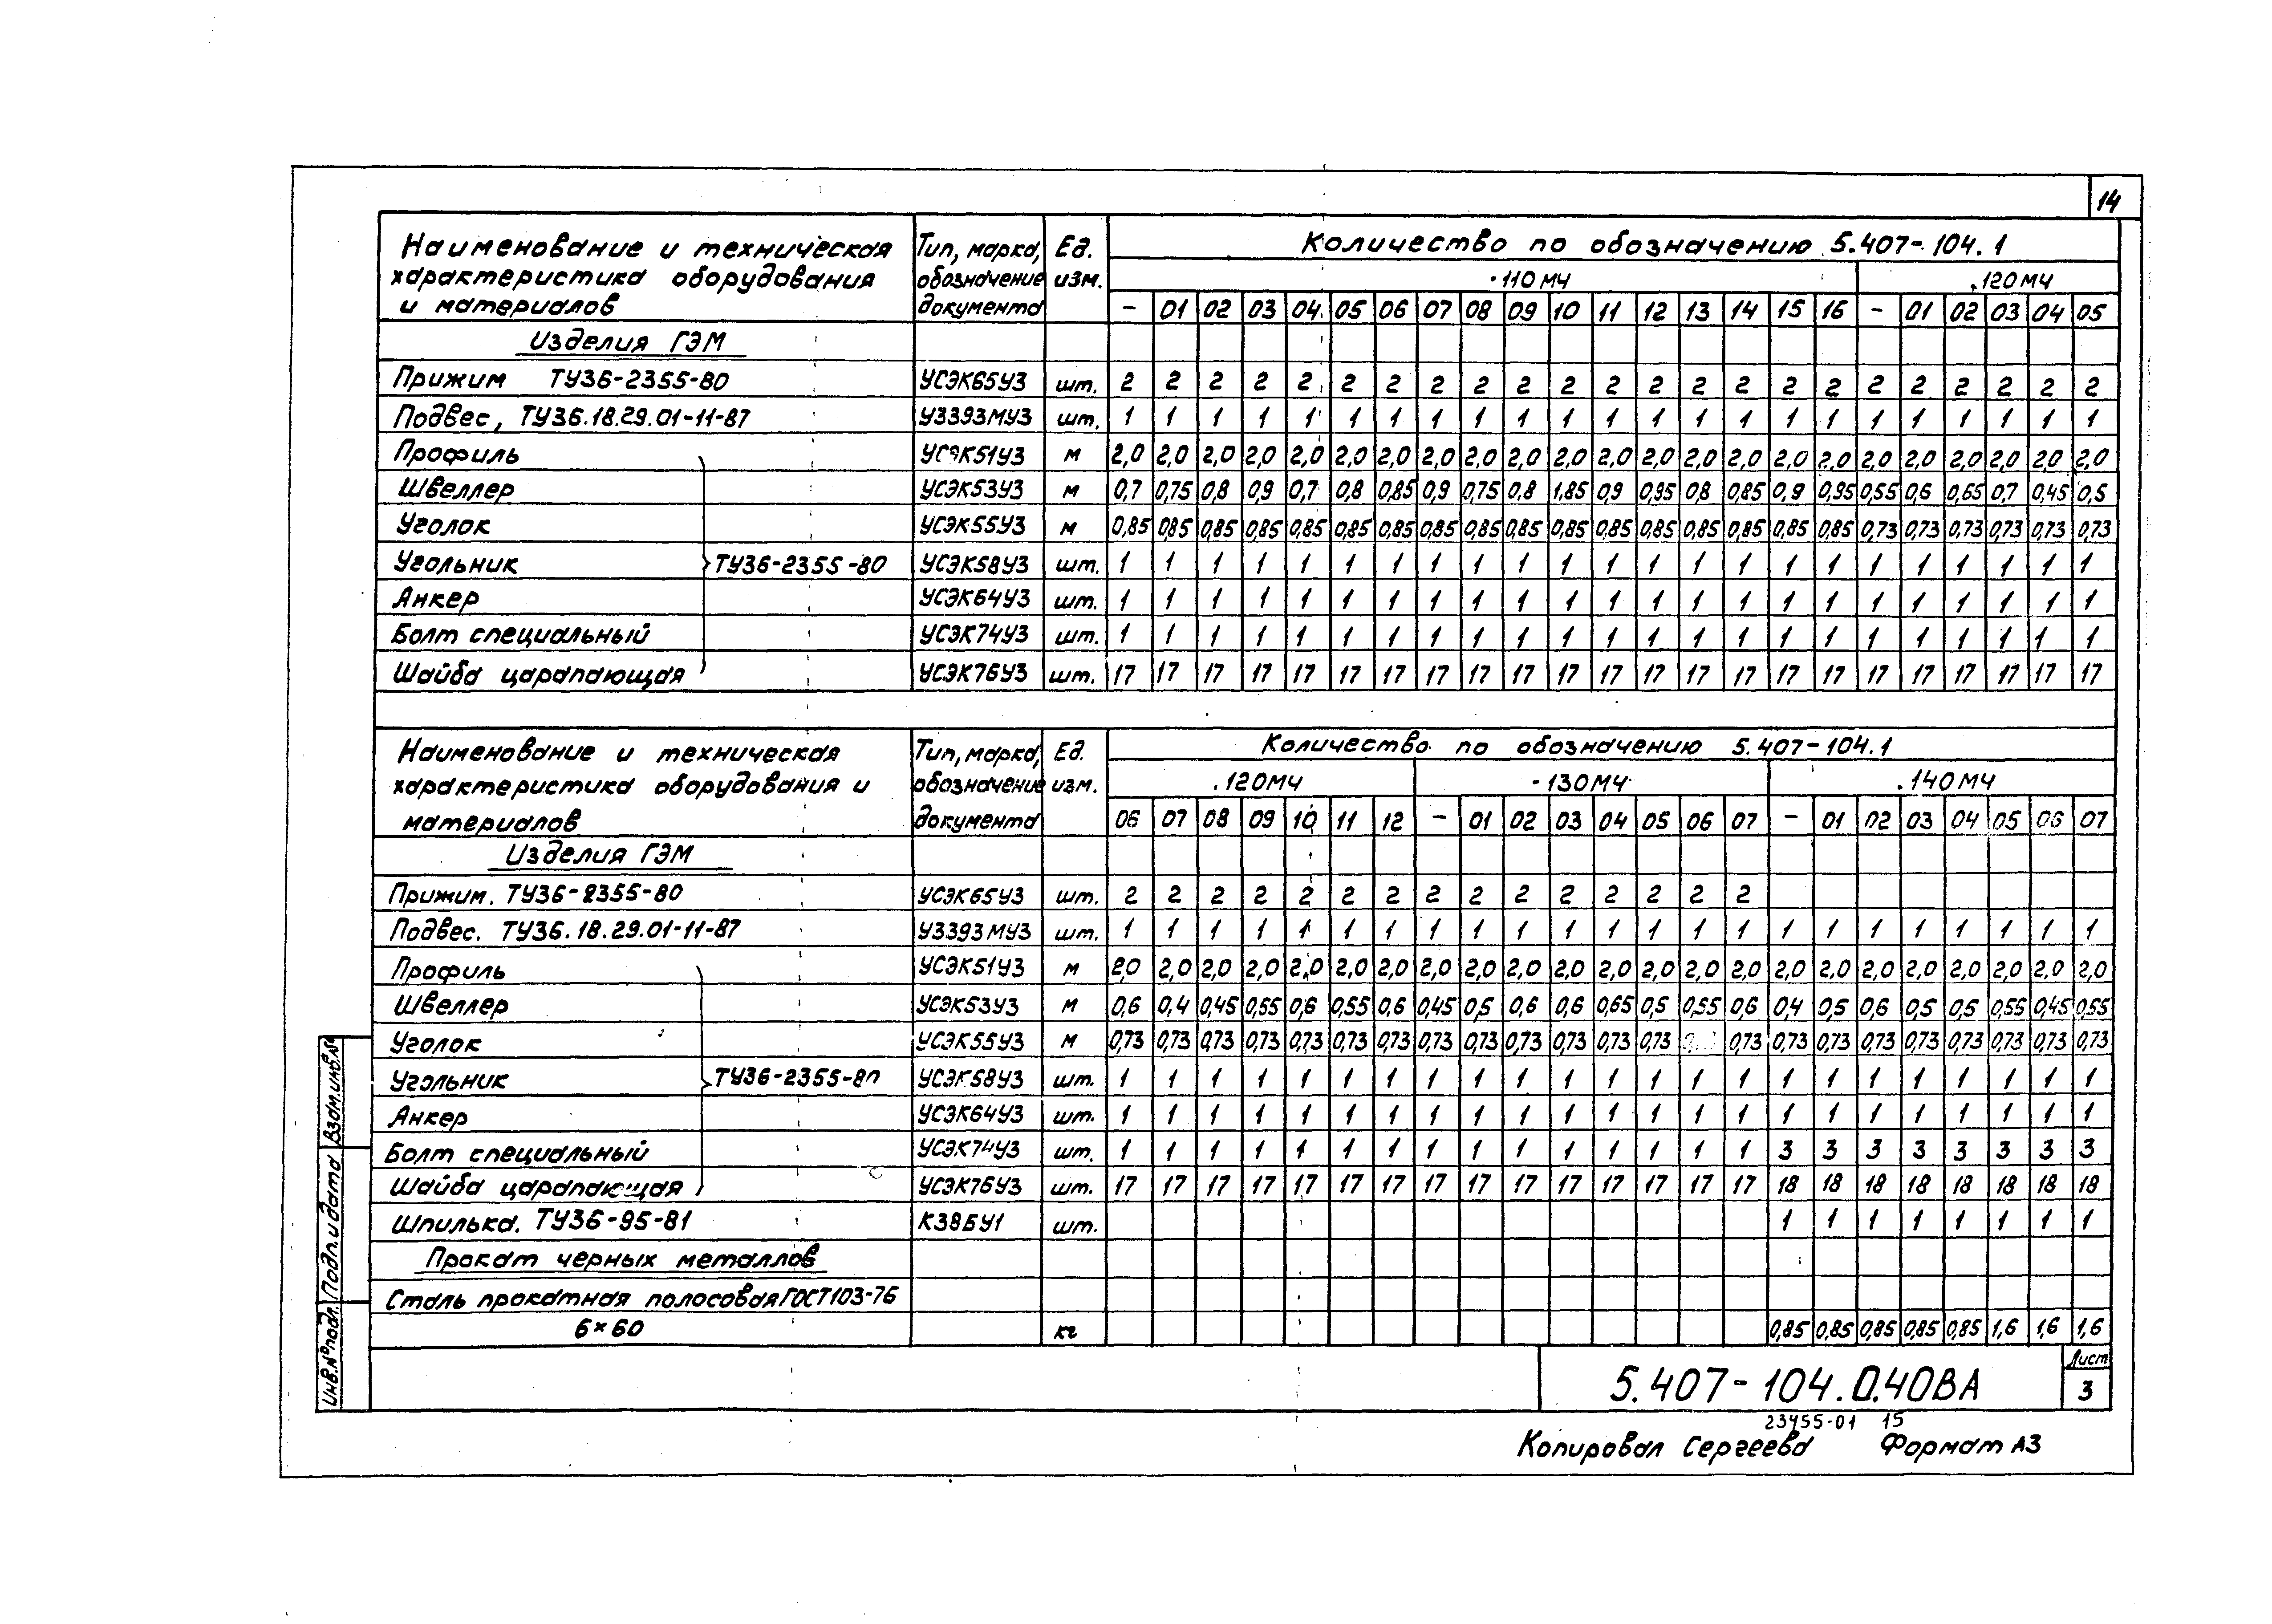 14
Наименование и техническая характеристика оборудования и материалов | Тип, марка, обозначение документа | Ед. изм. | Количество по обозначению 5.407-104.1
.110МЧ | .120МЧ
– 01 02 03 04 05 06 07 08 09 10 11 12 13 14 15 16 – 01 02 03 04 05
Изделия ГЭМ
Прижим ТУ36-2355-80 УСЭК65У3 шт. 2 2 2 2 2 2 2 2 2 2 2 2 2 2 2 2 2 2 2 2 2 2 2
Подвес, ТУ36.18.29.01-11-87 У3393МУ3 шт. 1 1 1 1 1 1 1 1 1 1 1 1 1 1 1 1 1 1 1 1 1 1 1
Профиль УСЭК51У3 м 2,0 2,0 2,0 2,0 2,0 2,0 2,0 2,0 2,0 2,0 2,0 2,0 2,0 2,0 2,0 2,0 2,0 2,0 2,0 2,0 2,0 2,0 2,0
Швеллер УСЭК53У3 м 0,7 0,75 0,8 0,9 0,7 0,8 0,85 0,9 0,75 0,8 1,85 0,9 0,95 0,8 0,85 0,9 0,95 0,55 0,6 0,65 0,7 0,45 0,5
Уголок УСЭК55У3 м 0,85 085 0,85 0,85 0,85 0,85 0,85 0,85 0,85 0,85 0,85 0,85 0,85 0,85 0,85 0,85 0,85 0,73 0,73 0,73 0,73 0,73 0,73
Угольник ТУ36-2355-80 УСЭК58У3 шт. 1 1 1 1 1 1 1 1 1 1 1 1 1 1 1 1 1 1 1 1 1 1 1
Анкер УСЭК64У3 шт. 1 1 1 1 1 1 1 1 1 1 1 1 1 1 1 1 1 1 1 1 1 1 1
Болт специальный УСЭК74У3 шт. 1 1 1 1 1 1 1 1 1 1 1 1 1 1 1 1 1 1 1 1 1 1 1
Шайба царапающая УСЭК76У3 шт. 17 17 17 17 17 17 17 17 17 17 17 17 17 17 17 17 17 17 17 17 17 17 17
Наименование и техническая характеристика оборудования и материалов | Тип, марка, обозначение документа | Ед. изм. | Количество по обозначению 5.407-104.1
.120МЧ | .130МЧ | .140МЧ
06 07 08 09 10 11 12 – 01 02 03 04 05 06 07 – 01 02 03 04 05 06 07
Изделия ГЭМ
Прижим. ТУ36-2355-80 УСЭК65У3 шт. 2 2 2 2 2 2 2 2 2 2 2 2 2 2 2
Подвес. ТУ36.18.29.01-11-87 У3393МУ3 шт. 1 1 1 1 1 1 1 1 1 1 1 1 1 1 1 1 1 1 1 1 1 1 1
Профиль УСЭК51У3 м 2,0 2,0 2,0 2,0 2,0 2,0 2,0 2,0 2,0 2,0 2,0 2,0 2,0 2,0 2,0 2,0 2,0 2,0 2,0 2,0 2,0 2,0 2,0
Швеллер УСЭК53У3 м 0,6 0,4 0,45 0,55 0,6 0,55 0,6 0,45 0,5 0,6 0,6 0,65 0,5 0,55 0,6 0,4 0,5 0,6 0,5 0,5 0,55 0,45 0,55
Уголок УСЭК55У3 м 0,73 0,73 0,73 0,73 0,73 0,73 0,73 0,73 0,73 0,73 0,73 0,73 0,73 0,73 0,73 0,73 0,73 0,73 0,73 0,73 0,73 0,73
Угольник ТУ36-2355-80 УСЭК58У3 шт. 1 1 1 1 1 1 1 1 1 1 1 1 1 1 1 1 1 1 1 1 1 1 1
Анкер УСЭК64У3 шт. 1 1 1 1 1 1 1 1 1 1 1 1 1 1 1 1 1 1 1 1 1 1 1
Болт специальный УСЭК74У3 шт. 1 1 1 1 1 1 1 1 1 1 1 1 1 1 1 3 3 3 3 3 3 3 3
Шайба царапающая УСЭК76У3 шт. 17 17 17 17 17 17 17 17 17 17 17 17 17 17 17 18 18 18 18 18 18 18 18
Шпилька. ТУ36-95-81 К38БУ1 шт. 1 1 1 1 1 1 1 1
Прокат черных металлов
Сталь прокатная полосовая ГОСТ103-76
6×60 кг 0,85 0,85 0,85 0,85 0,85 1,6 1,6 1,6
Взам.инв.№
Подп. и дата
Инв.№подл.
5.407-104.0.40ВА
Лист
3
23455-01 15
Копировал Сергеева Формат А3